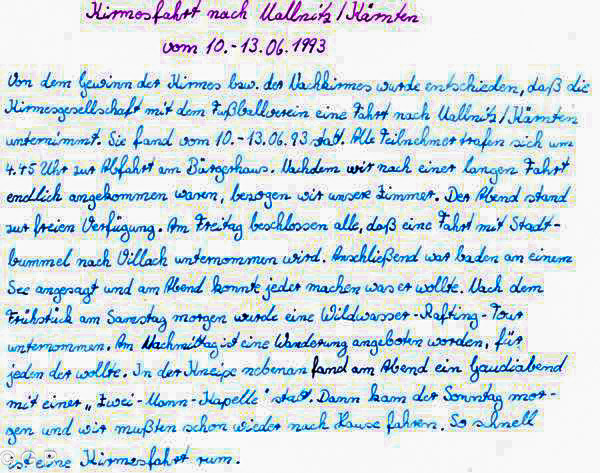 Kirmesfahrt nach Mallnitz/Kärnten
vom 10.-13.06.1993
Von dem Gewinn der Kirmes bzw. der Nachkirmes wurde entschieden, daß die
Kirmesgesellschaft mit dem Fußballverein eine Fahrt nach Mallnitz/Kärnten
unternimmt. Sie fand vom 10.-13.06.93 statt. Alle Teilnehmer trafen sich um
4.45 Uhr zur Abfahrt am Bürgerhaus. Nachdem wir nach einer langen Fahrt
endlich angekommen waren, bezogen wir unsere Zimmer. Der Abend stand
zur freien Verfügung. Am Freitag beschlossen alle, daß eine Fahrt mit Stadt-
bummel nach Villach unternommen wird. Anschließend war baden an einem
See angesagt und am Abend konnte jeder machen was er wollte. Nach dem
Frühstück am Samstag morgen wurde eine Wildwasser-Rafting-Tour
unternommen. Am Nachmittag ist eine Wanderung angeboten worden, für
jeden der wollte. In der Kneipe nebenan fand am Abend ein Gaudiabend
mit einer „Zwei-Mann-Kapelle" statt. Dann kam der Sonntag mor-
gen und wir mußten schon wieder nach Hause fahren. So schnell
ist eine Kirmesfahrt rum.